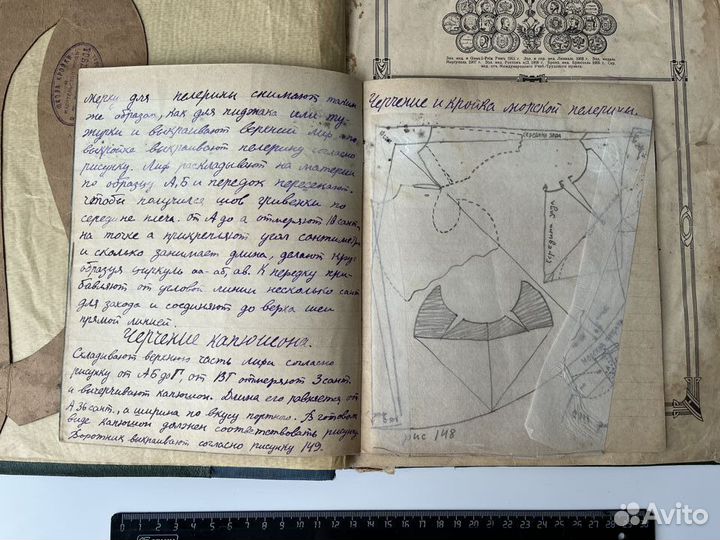 Мерки для пелерины снимают таким
же образом, как для пиджака или ту-
журки и выкраивают верхней лиф, по
выкройке выкраивают пелерину согласно
рисунку. Лиф раскладывают на материи
по образцу А, Б и передок перегибают.
Чтобы получился шов
середине плеча. от А до а отмеряют 10 сант.
на точке а прикрепляют угол сантиметра
и сколько занимает длина, делают круг
образуя циркуль аа-аб, ав. К передку при-
бавляют от угловой линии несколько сант
для захода и соединяют до верха шеи
прямой линией.
Черчение капюшона.
Складывают верхнюю часть лифа согласно
рисунку от АБ до Г, от ВГ отмеряют 3 сант.
и вычерчивают капюшон. Длина его равняется от
А 36 сант., а ширина по вкусу портного. В готовом
виде капюшон должен соответствовать рисунку
Воротник выкраивают согласно рисунку 149.
Черчение и кройка морской пелерины.
середина зада
Середина зада
рис 148
ШКОЛА КРОЙКИ
0 1 2 3 4 5 6 7 8 9 10 11 12 13 14 15 16 17 18 19 20 21 22 23 24 25 26 27 28
Avito